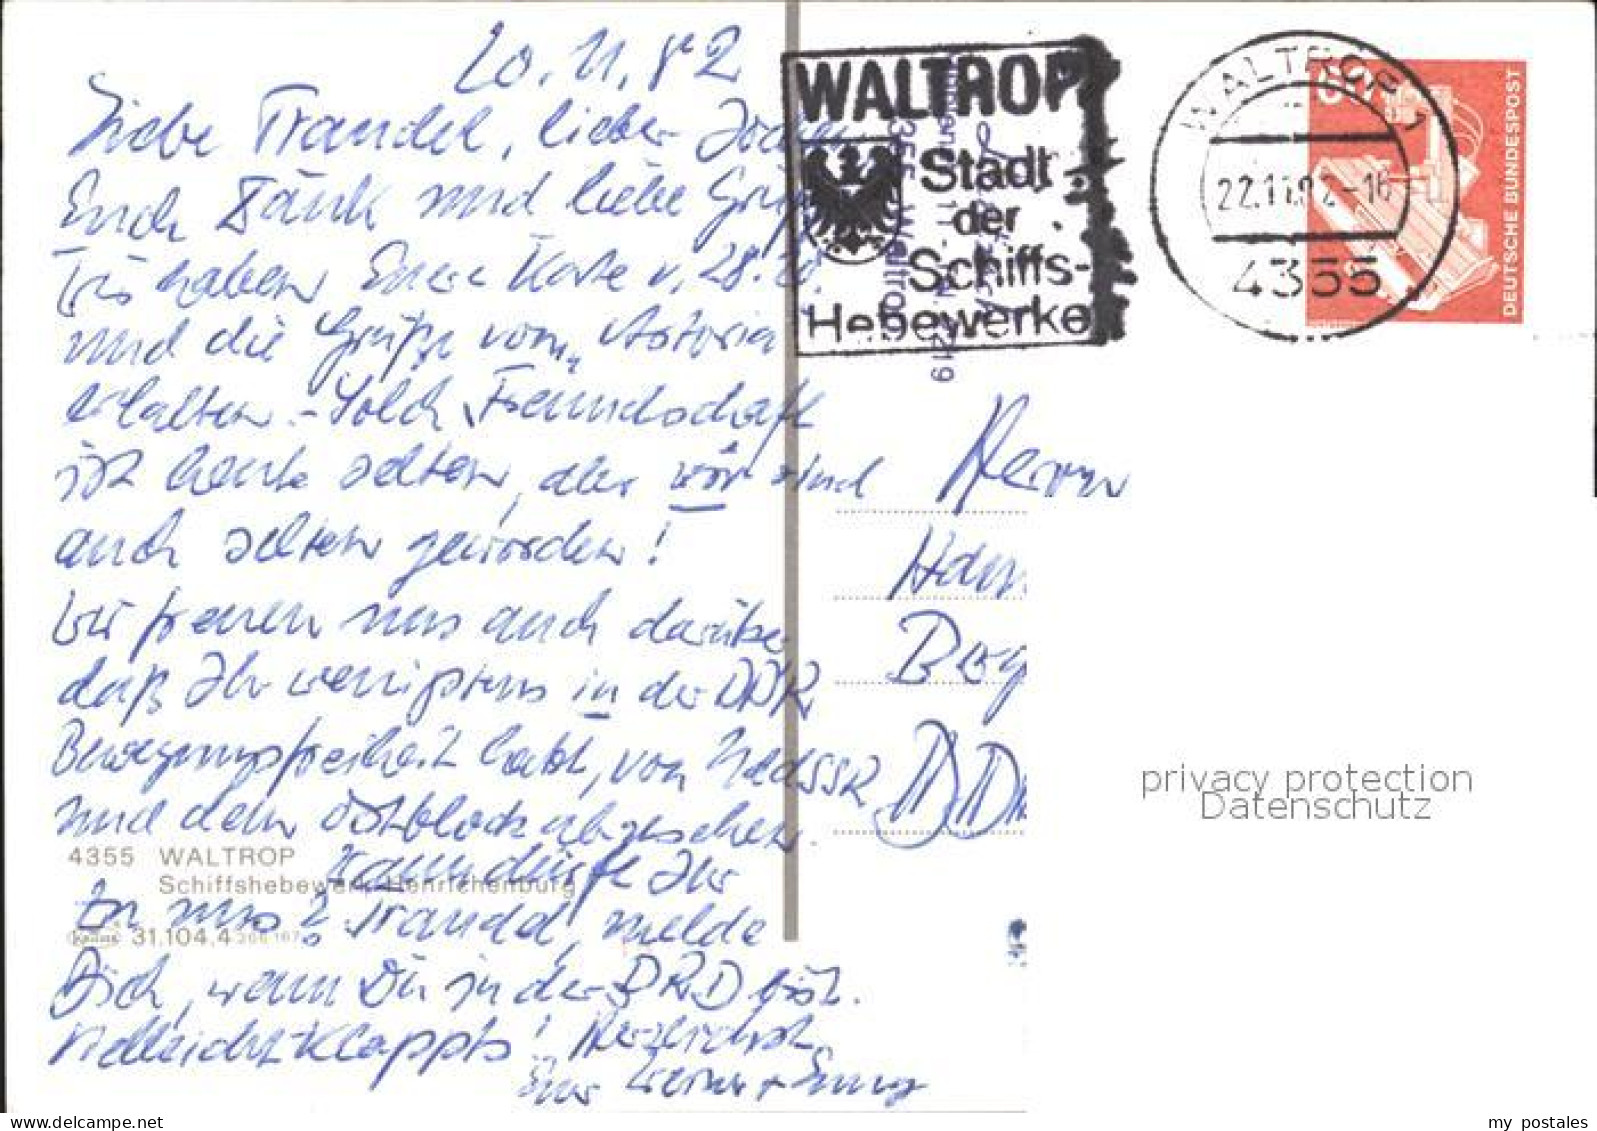 20.11.82
Liebe Traudel, lieber Jochen
Euch Dank und liebe Grüße
Wir haben Eure Karte v. 28.10.
und die Grüße vom „Astoria
erhalten. - Solch Freundschaft
ist heute selten, aber wir sind
auch selten geworden!
Wir freuen uns auch darüber
daß Ihr wenigstens in der DDR
Bewegungsfreiheit habt, von UdSSR
und dem Ostblock abgesehen.
Wann dürft Ihr
zu uns? Traudel, melde
Dich, wenn Du in der BRD bist.
Vielleicht klappts! Herzlichst
Eure Werner +
4355 WALTROP
Schiffshebewerk Henrichenburg
Krüger 31.104.4
WALTROP
Stadt
der
Schiffs-
Hebewerke
WALTROP 1
22.11.82-16
4355
60
DEUTSCHE BUNDESPOST
4355 Waltrop
Herrn
privacy protection
Datenschutz
www.delcampe.net
my_postales